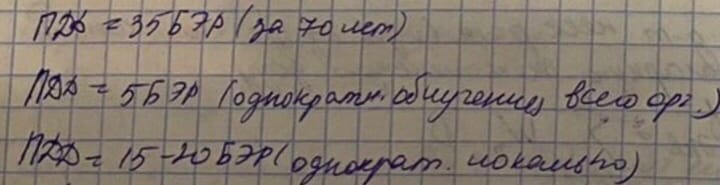 ПДД = 35БЭР (за 70 лет)
ПДД = 5БЭР (однократн. облучение, всего орг.)
ПДД = 15-20БЭР (однократ. локально)